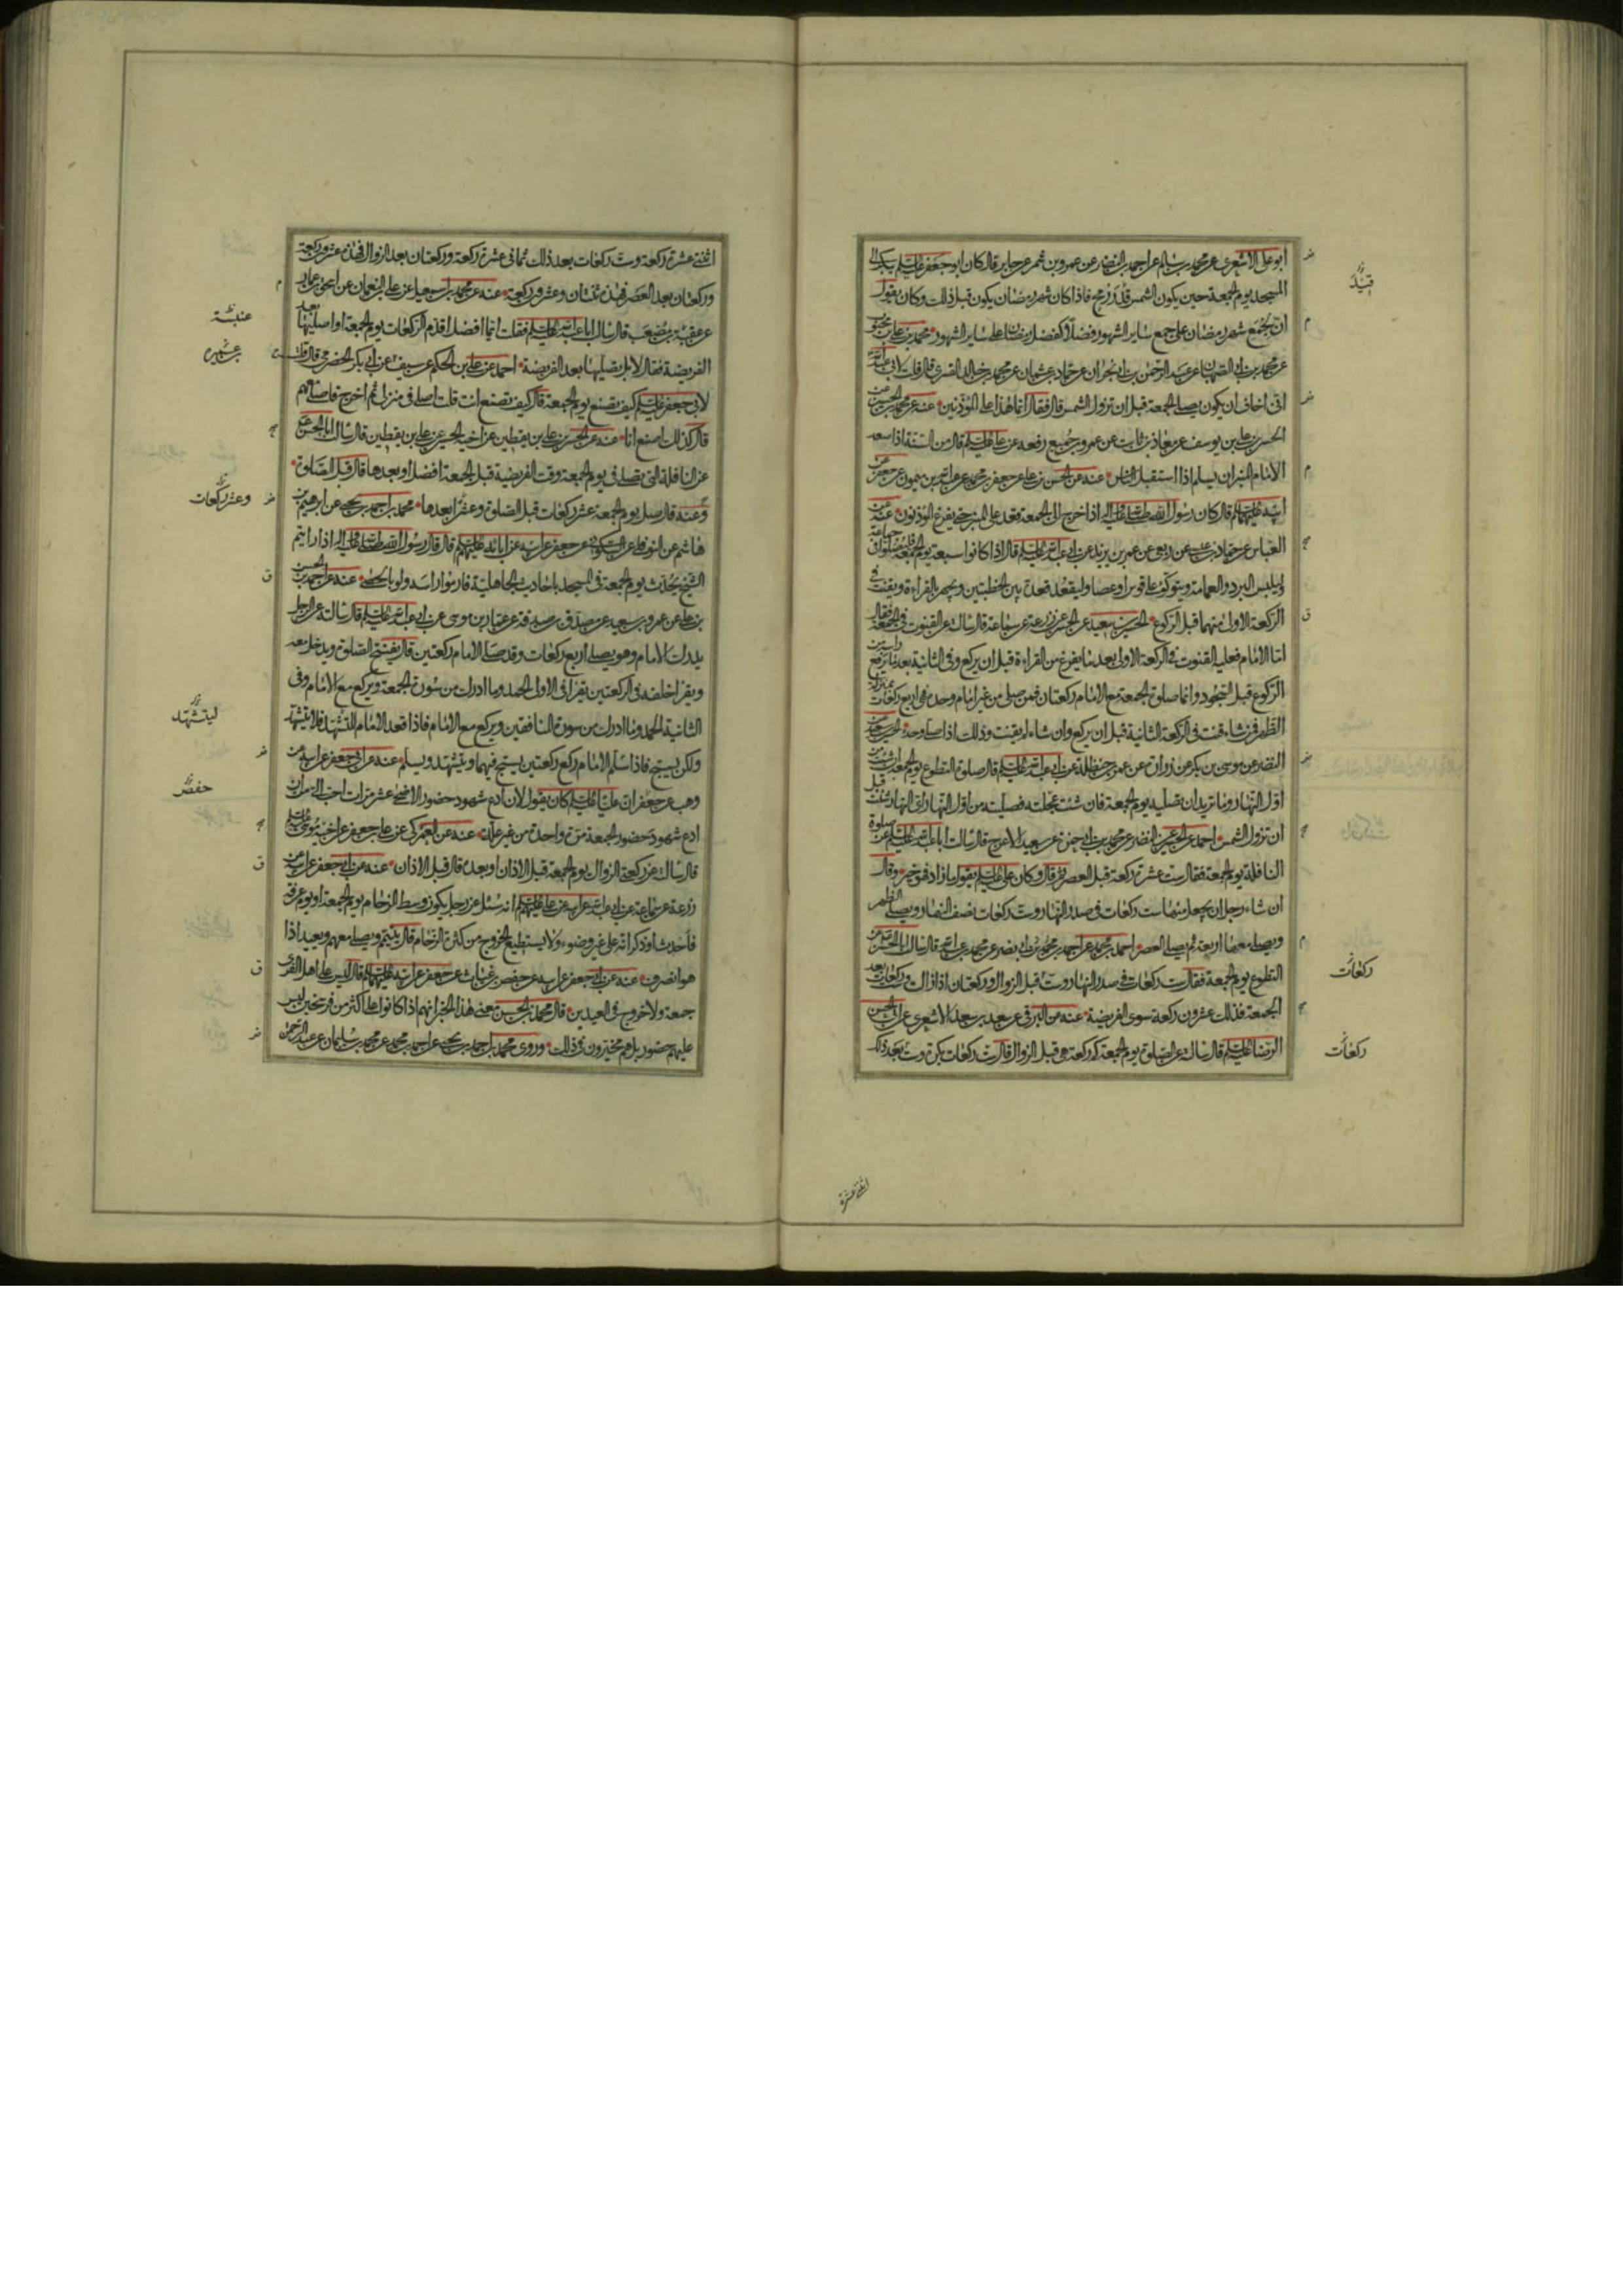 ابو على الاشعرى عن محمد بن سالم عن احمد بن النضر عن عمرو بن شمر عن جابر قال كان ابو جعفر عليه السلم يبكر الى
المسجد يوم الجمعة حين يكون الشمس قدر رمح فاذا كان شهر رمضان يكون قبل ذلك وكان يقول
ان لجمع شهر رمضان على جمع ساير الشهور فضلا كفضل رمضان على ساير الشهور محمد بن على بن محبوب
عن محمد بن ابى الصهبان عن عبد الرحمن بن ابى نجران عن حماد بن عثمان عن محمد بن خالد القسرى قال قلت لابى عبد الله
انى اخاف ان يكون يصلى الجمعة قبل ان تزول الشمس قال فقال انما هذا على المؤذنين عنه عن محمد بن الحسين عن
الحسن بن على بن يوسف عن معاذ بن ثابت عن عمرو بن جميع رفعه عن على عليه السلم قال من السنة اذا صعد
الامام المنبر ان يسلم اذا استقبل الناس عنه عن الحسن بن على عن جعفر بن محمد عن عبد الله بن ميمون عن جعفر عن
ابيه عليهما السلم قال كان رسول الله صلى الله عليه واله اذا خرج الى الجمعة قعد على المنبر حتى يفرغ المؤذنون عنه عن
العباس عن حماد بن عيسى عن ربعى عن عمر بن يزيد عن ابى عبد الله عليه السلم قال اذا كانوا سبعة يوم الجمعة فليصلوا فى جماعة
وليلبس البرد والعمامة ويتوكؤ على قوس او عصا وليقعد قعدة بين الخطبتين ويجهر بالقراءة ويقنت فى
الركعة الاولى منهما قبل الركوع الحسين بن سعيد عن الحسن عن زرعة عن سماعة قال سالته عن القنوت فى الجمعة فقال
اما الامام فعليه القنوت فى الركعة الاولى بعد ما يفرغ من القراءة قبل ان يركع وفى الثانية بعد ما يرفع راسه من
الركوع قبل السجود وانما صلوة الجمعة مع الامام ركعتان فمن صلى من غير امام وحده فهى اربع ركعات بمنزلة
الظهر فمن شاء قنت فى الركعة الثانية قبل ان يركع وان شاء لم يقنت وذلك اذا صلى وحده الحسين بن سعيد عن
النضر عن موسى بن بكر عن زرارة عن عمر بن حنظلة عن ابى عبد الله عليه السلم قال صلوة التطوع يوم الجمعة ان شئت من
اول النهار وما تريد ان تصليه يوم الجمعة فان شئت عجلته فصليته من اول النهار اى النهار شئت قبل
ان تزول الشمس احمد عن الحسين عن النضر عن محمد بن ابى حمزة عن سعيد الاعرج قال سالت ابا عبد الله عليه السلم عن صلوة
النافلة يوم الجمعة فقال ست عشرة ركعة قبل العصر ثم قال وكان على عليه السلم يقول ما زاد فهو خير وقال
ان شاء رجل ان يجعل منها ست ركعات فى صدر النهار وست ركعات نصف النهار ويصلى الظهر
ويصلى معها اربعة ثم يصلى العصر احمد بن محمد عن احمد بن محمد بن ابى نصر عن محمد بن عبد الله قال سالت ابا الحسن عن
التطوع يوم الجمعة فقال ست ركعات فى صدر النهار وست قبل الزوال وركعتان اذا زالت وست ركعات بعد
الجمعة فذلك عشرون ركعة سوى الفريضة عنه عن البرقى عن سعد بن سعد الاشعرى عن ابى الحسن
الرضا عليه السلم قال سالته عن الصلوة يوم الجمعة كم ركعة هى قبل الزوال قال ست ركعات بكرة وست بعد ذلك
ركعات
ركعات
اثنتى عشرة
اثنتى عشرة ركعة وست ركعات بعد ذلك ثمانى عشرة ركعة وركعتان بعد الزوال فهذه عشرون ركعة
وركعتان بعد العصر فهذه ثنتان وعشرون ركعة عنه عن محمد بن اسمعيل عن على بن النعمان عن اسحق بن عمار
عن عقبة بن مصعب قال سالت ابا عبد الله عليه السلم فقلت ايما افضل اقدم الركعات يوم الجمعة او اصليها بعد
الفريضة فقال لا بل تصليها بعد الفريضة احمد عن على بن الحكم عن سيف عن ابى بكر الحضرمى قال قلت
لابى جعفر عليه السلم كيف تصنع يوم الجمعة قال كيف تصنع انت قلت اصلى فى منزلى ثم اخرج فاصلى معهم
قال كذلك اصنع انا عنه عن الحسن بن على بن يقطين عن اخيه الحسين عن على بن يقطين قال سالت ابا الحسن
عن النافلة التى تصلى فى يوم الجمعة وقت الفريضة قبل الجمعة افضل او بعدها قال قبل الصلوة
وعنه قال صل يوم الجمعة عشر ركعات قبل الصلوة وعشرا بعدها محمد بن احمد بن يحيى عن ابرهيم بن
هاشم عن النوفلى عن السكونى عن جعفر عن ابيه عن ابائه عليهم السلم قال قال رسول الله صلى الله عليه واله اذا رايتم
الشيخ يحدث يوم الجمعة فى المسجد باحاديث الجاهلية فارموا راسه ولو بالحصى عنه عن احمد بن الحسن
بن على عن عمرو بن سعيد عن مصدق بن صدقة عن عمار بن موسى عن ابى عبد الله عليه السلم قال سالته عن الرجل
يدرك الامام وهو يصلى اربع ركعات وقد صلى الامام ركعتين قال يفتتح الصلوة ويدخل معه
ويقرا خلفه فى الركعتين يقرا فى الاولى الحمد وما ادرك من سورة الجمعة ويركع مع الامام وفى
الثانية الحمد وما ادرك من سورة المنافقين ويركع مع الامام فاذا قعد الامام للتشهد فلا يتشهد
ولكن يسبح فاذا سلم الامام ركع ركعتين يسبح فيهما ويتشهد ويسلم عنه عن ابى جعفر عن ابيه عن
وهب عن جعفر ان عليا عليه السلم كان يقول لان ادع شهود حضور الاضحى عشر مرات احب الى من ان
ادع شهود حضور الجمعة مرة واحدة من غير علة عنه عن العمركى عن على بن جعفر عن اخيه موسى
قال سالته عن ركعتى الزوال يوم الجمعة قبل الاذان او بعده قال قبل الاذان عنه عن ابى جعفر عن ابيه عن
زرعة عن سماعة عن ابى عبد الله عن ابيه عن على عليهم السلم انه سئل عن رجل يكون وسط الزحام يوم الجمعة او يوم عرفة
فاحدث او ذكر انه على غير وضوء ولا يستطيع الخروج من كثرة الزحام قال يتيمم ويصلى معهم ويعيد اذا
هو انصرف عنه عن ابى جعفر عن ابيه عن حفص بن غياث عن جعفر عن ابيه عليهما السلم قال ليس على اهل القرى
جمعة ولا خروج فى العيدين قال محمد بن الحسن معنى هذا الخبر انهم اذا كانوا على اكثر من فرسخين ليس
عليهم حضور بل هم مخيرون فى ذلك وروى محمد بن احمد بن يحيى عن احمد بن محمد عن محمد بن سليمان عن عبد الرحمن
وعشر ركعات
ليتشهد
حفص